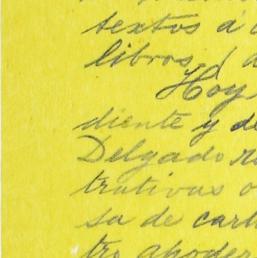 textos á
libros
Hoy
diente y de
Delgado
trativas o
sa de car
tro apoder